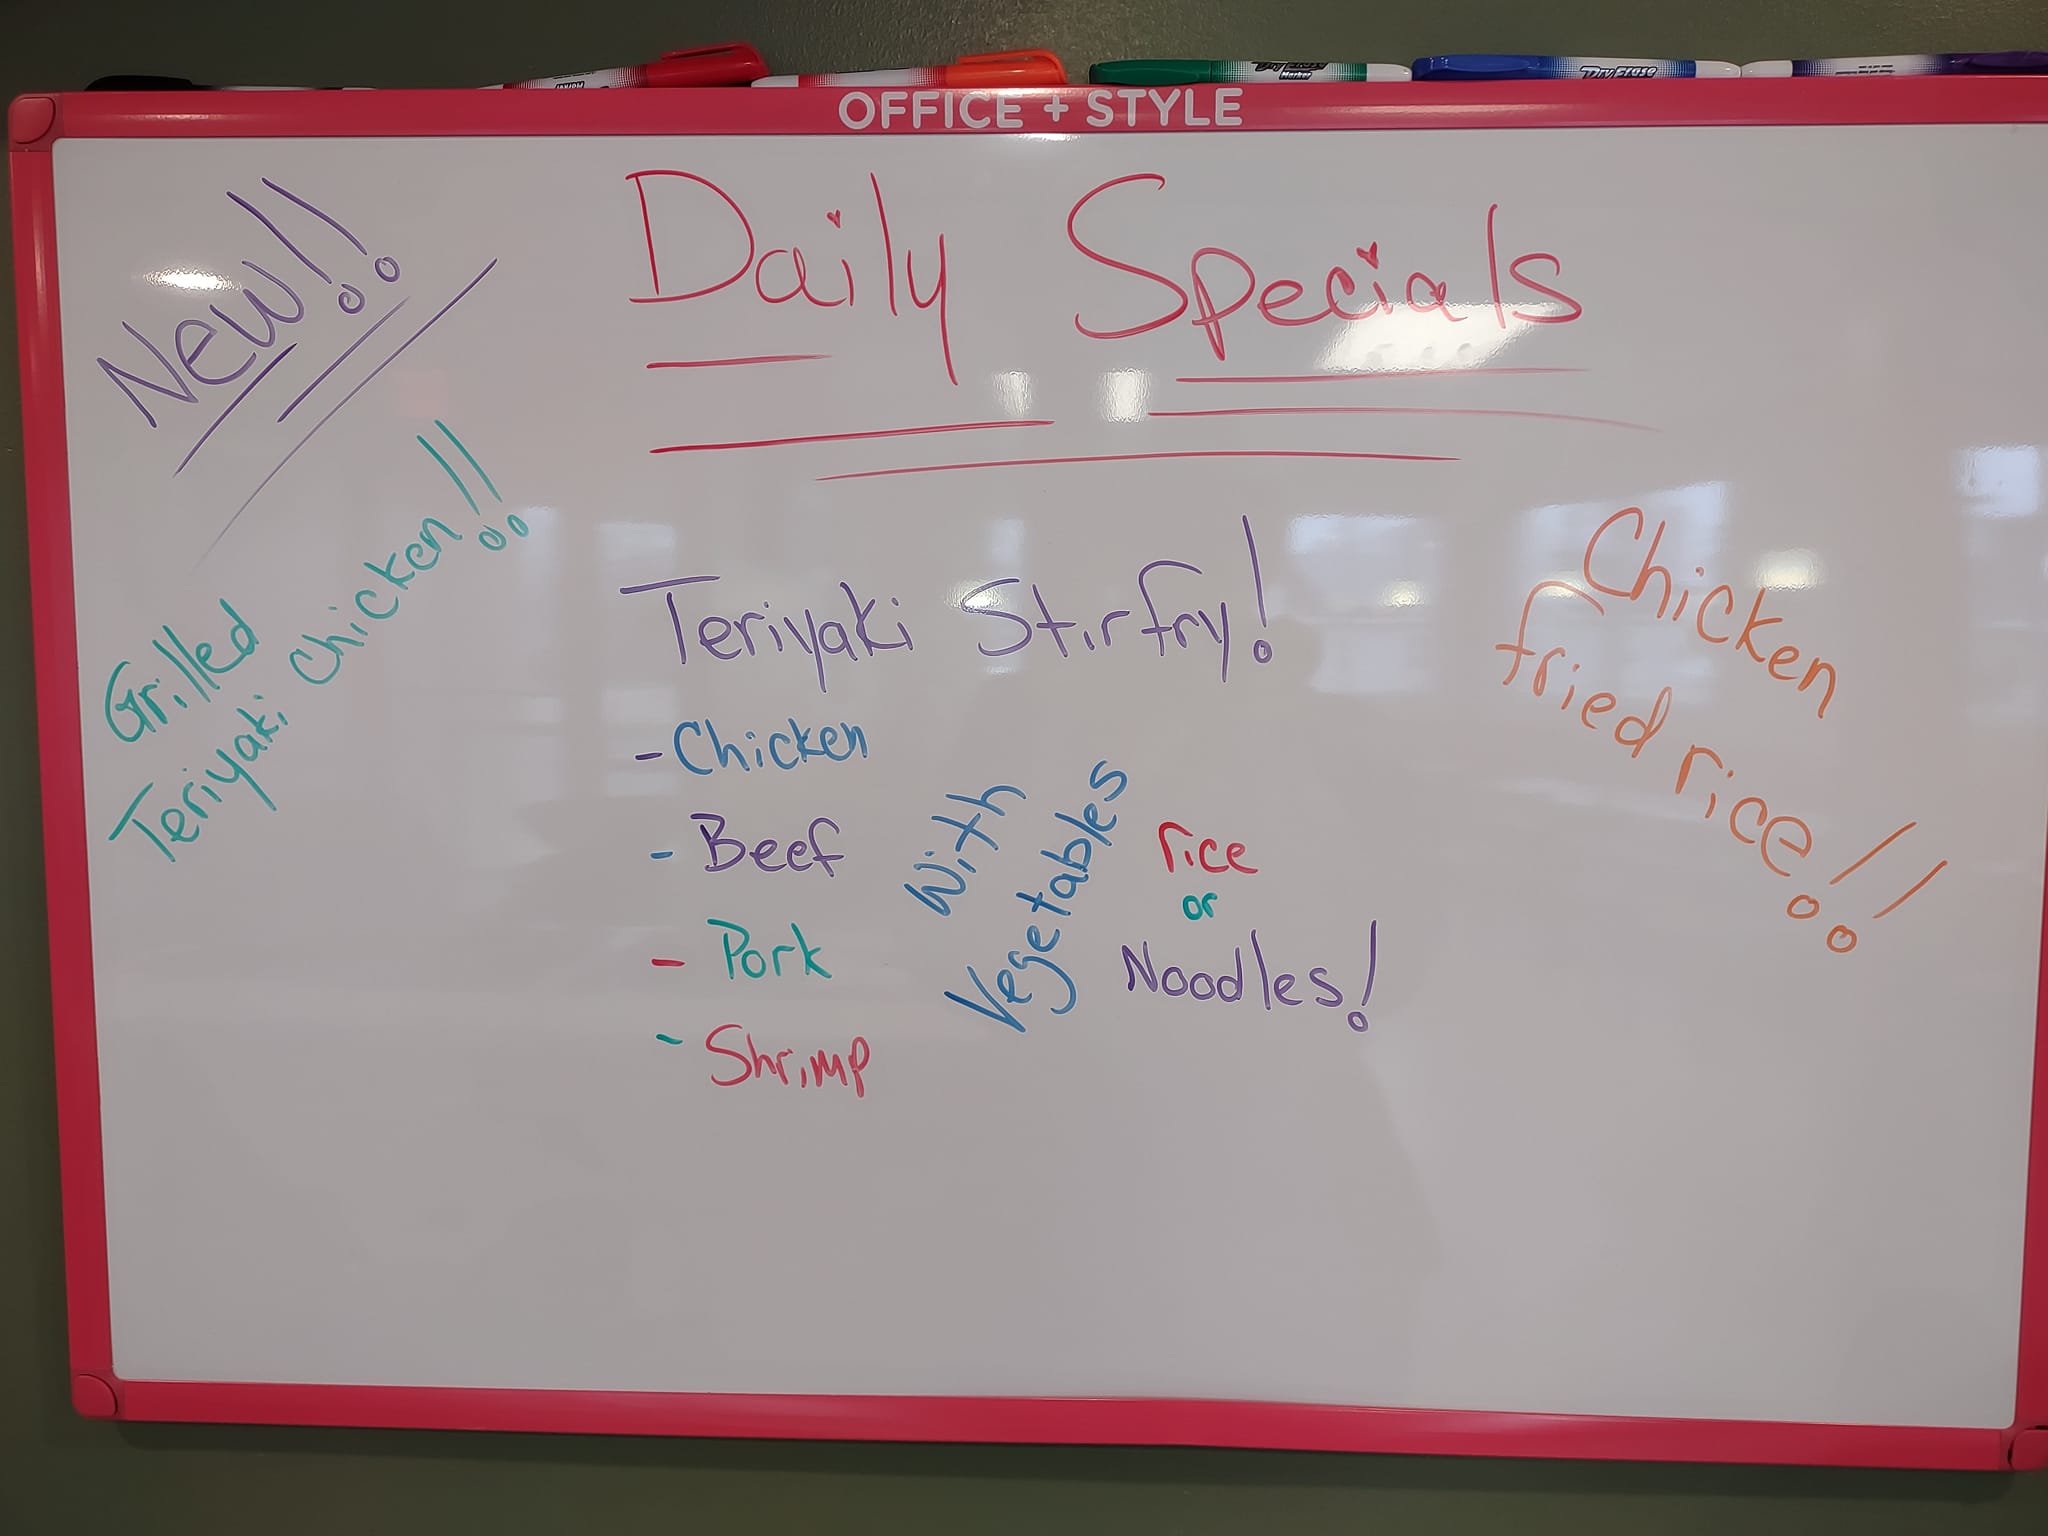 OFFICE + STYLE
Daily Specials
New!!
Grilled
Teriyaki Chicken!!
Teriyaki Stirfry!
- Chicken
- Beef
- Pork
- Shrimp
With
Vegetables
rice
or
Noodles!
Chicken
fried rice!!
DRY ERASE
Marker
DRY ERASE